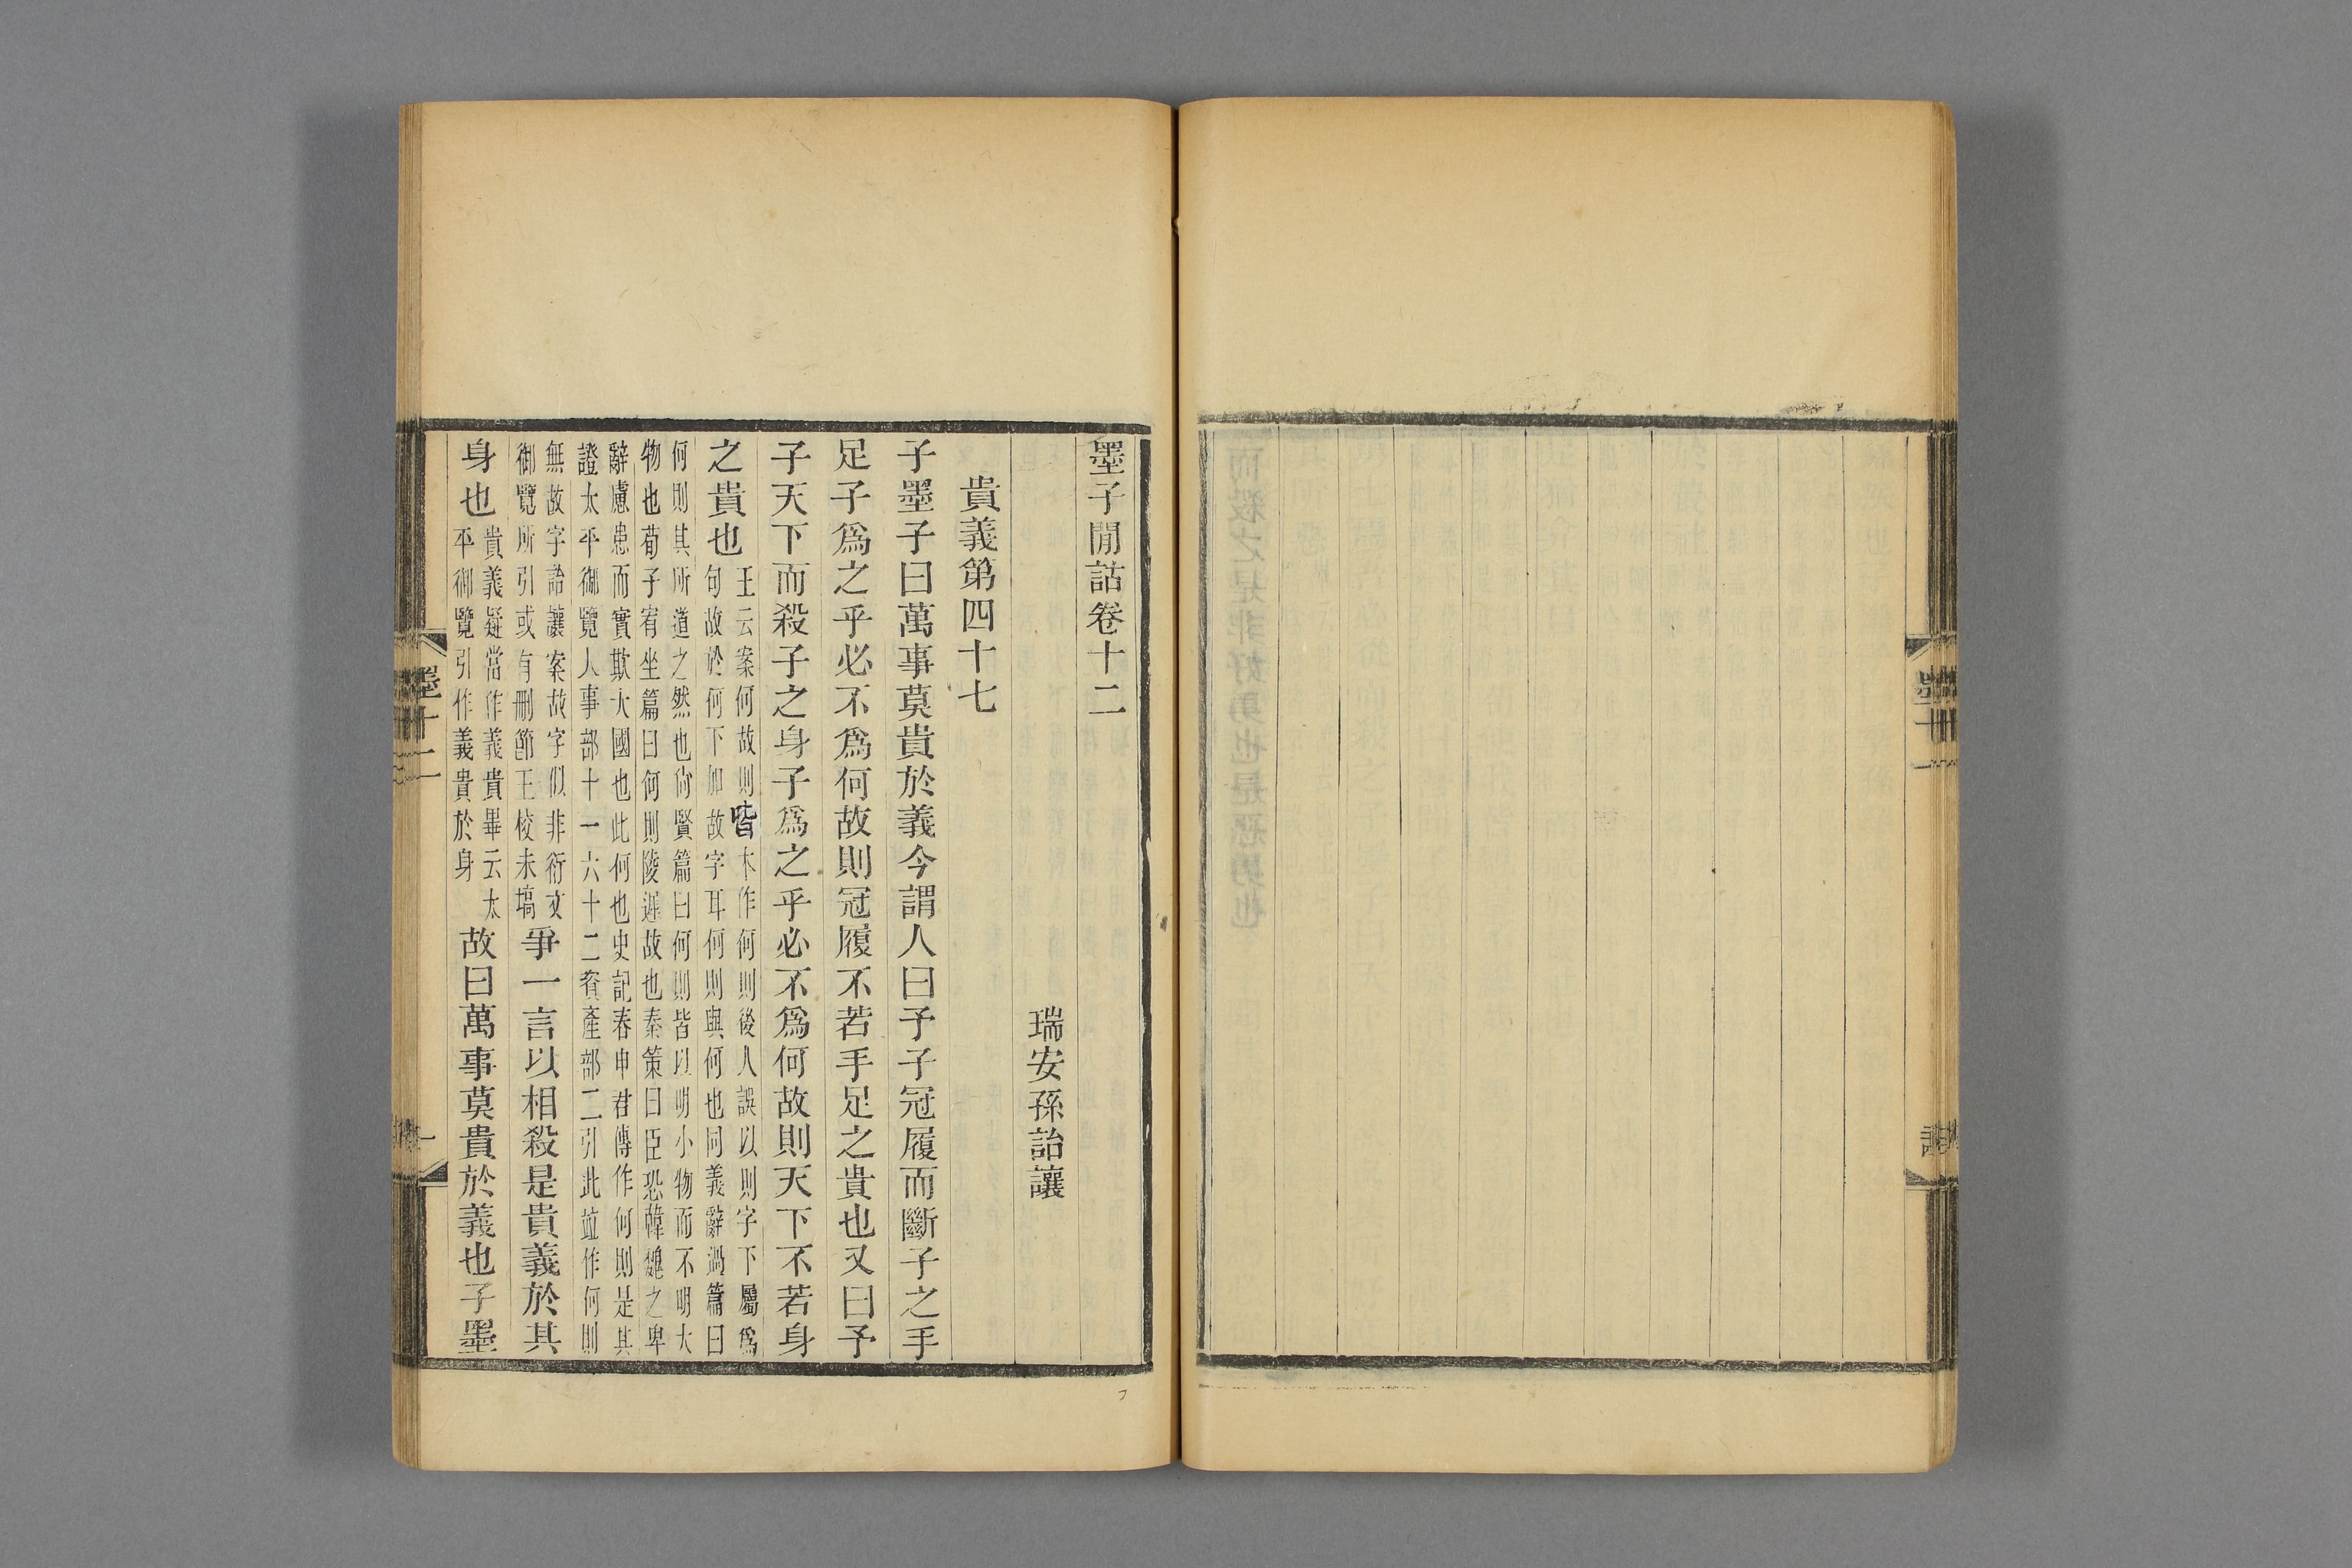 墨子閒詁卷十二
瑞安孫詒讓
貴義第四十七
子墨子曰萬事莫貴於義今謂人曰予子冠履而斷子之手
足子爲之乎必不爲何故則冠履不若手足之貴也又曰予
子天下而殺子之身子爲之乎必不爲何故則天下不若身
之貴也
王云案何故則皆本作何則後人誤以則字下屬爲
句故於何下加故字耳何則與何也同義辭過篇曰
何則其所道之然也尙賢篇曰何則皆以明小物而不明大
物也荀子宥坐篇曰何則陵遲故也秦策曰臣恐韓魏之卑
辭慮患而實欺大國也此何也史記春申君傳作何則是其
證太平御覽人事部十一六十二資產部二引此竝作何則
無故字詒讓案故字似非衍文
御覽所引或有刪節王校未塙
爭一言以相殺是貴義於其
身也
貴義疑當作義貴畢云太
平御覽引作義貴於身
故曰萬事莫貴於義也子墨
墨十二
一
墨十一